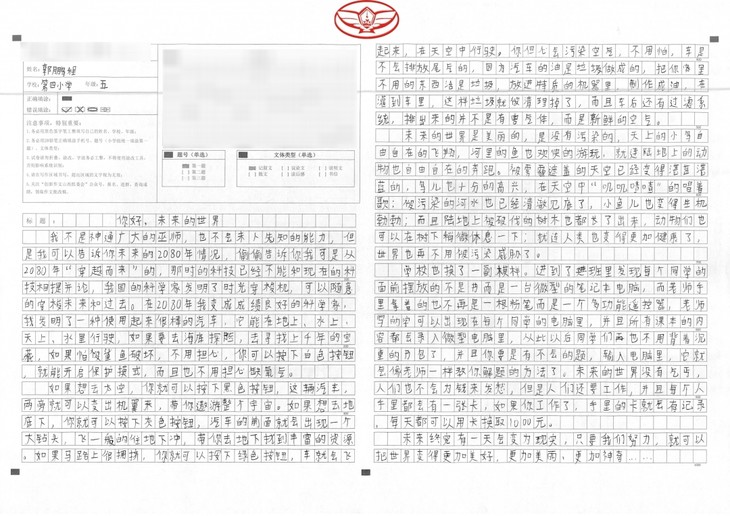 姓名：郭鹏
学校：第四小学 年级：五
正确填涂：
错误填涂：
注意事项，特别重要：
题号（单选）
文体类型（单选）
第一题
第二题
第三题
记叙文
议论文
说明文
散文
书信
标题： 你好，未来的世界
我不是神通广大的巫师，也不会未卜先知的能力，但
是我可以告诉你未来的2080年情况，偷偷告诉你我可是从
2080年“穿越而来”的，那时的科技已经不能和现在的科
技相提并论，我国的科学家发明了时光穿梭机，可以随意
的穿梭未来和过去。在2080年我变成成绩良好的科学家，
我发明了一种使用起来很棒的汽车，它能在地上、水上、
天上、水里行驶，如果要去海底探险，去寻找上千年的宝
藏，如果怕被鲨鱼破坏，不用担心，你可以按下白色按钮
，就能开启保护模式，而且也不用担心缺氧等。
如果想去太空，你就可以按下黑色按钮，这辆汽车，
两旁就可以变出机翼来，带你遨游整个宇宙。如果想去地
底下，你就可以按下灰色按钮，汽车的前面就会出现一个
大钻头，飞一般的往地下冲，带你去地下找到丰富的资源
。如果马路上很拥挤，你就可以按下绿色按钮，车就会飞
起来，在天空中行驶。你怕它会污染空气，不用怕，车是
不会排放尾气的，因为汽车的油是垃圾做成的，把你家里
不用的东西沾是垃圾，放进特启的机器里，制作成油，在
灌到车里，这样垃圾就得清理掉了，而且车后还有过滤系
统，排出来的并不是有害气体，而是新鲜的空气。
未来的世界是美丽的，是没有污染的，天上的小鸟自
由自在的飞翔，河里的鱼也欢快的游玩，就连陆地上的动
物也自由自在的奔跑。被雾霾遮盖的天空已经变得湛蓝湛
蓝的，鸟儿也十分的高兴，在天空中“叽叽喳喳”的唱着
歌；被污染的河水也已经清澈见底了，小鱼儿也变得生机
勃勃；而且陆地上被砍伐的树木也都长了出来，动物们也
可以在树下稍微休息一下；就连人类也变得更加健康了，
世界也再不用被污染威胁了。
学校也换了一副模样。进到了班里发现每个同学的
面前摆放的不是书而是一台微型的笔记本电脑，而老师手
里拿着的也不再是一根粉笔而是一个多功能遥控器，老师
写的字可以出现在每个同学的电脑里，并且所有课本的内
容都会录入微型电脑里，从此以后同学们再也不用背着沉
重的书包了，并且你要是有不会的题，输入电脑里，它就
会像老师一样教你解题的方法了。未来的世界没有乞丐，
人们也不会为钱来发愁，但是人们还要工作，并且每个人
手里都会有一张卡，如果你工作了，手里的卡就会有记录
，每天都可以用卡换取1000元。
未来终究有一天会变为现实，只要我们努力，就可以
把世界变得更加美好，更加美丽，更加神奇……